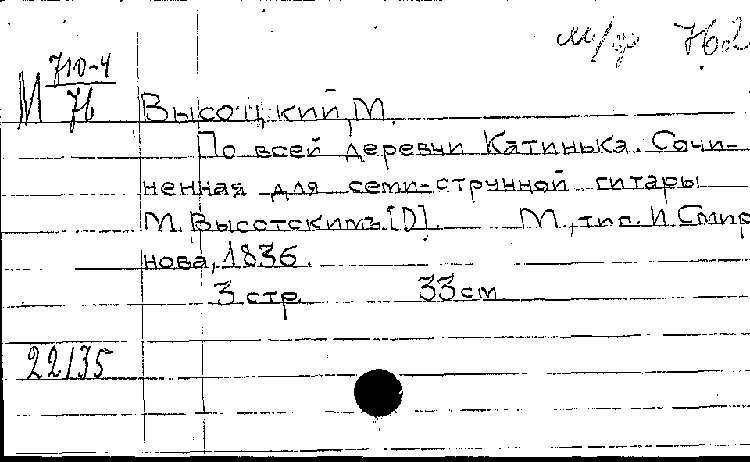 м/ф 762
М 710-4/76
Высоцкий, М.
По всей деревни Катинька. Сочи-
ненная для семи-струнной гитары
М. Высотскимъ. [D]. М., тип. И. Смир
нова, 1836.
3 стр. 33 см
22135